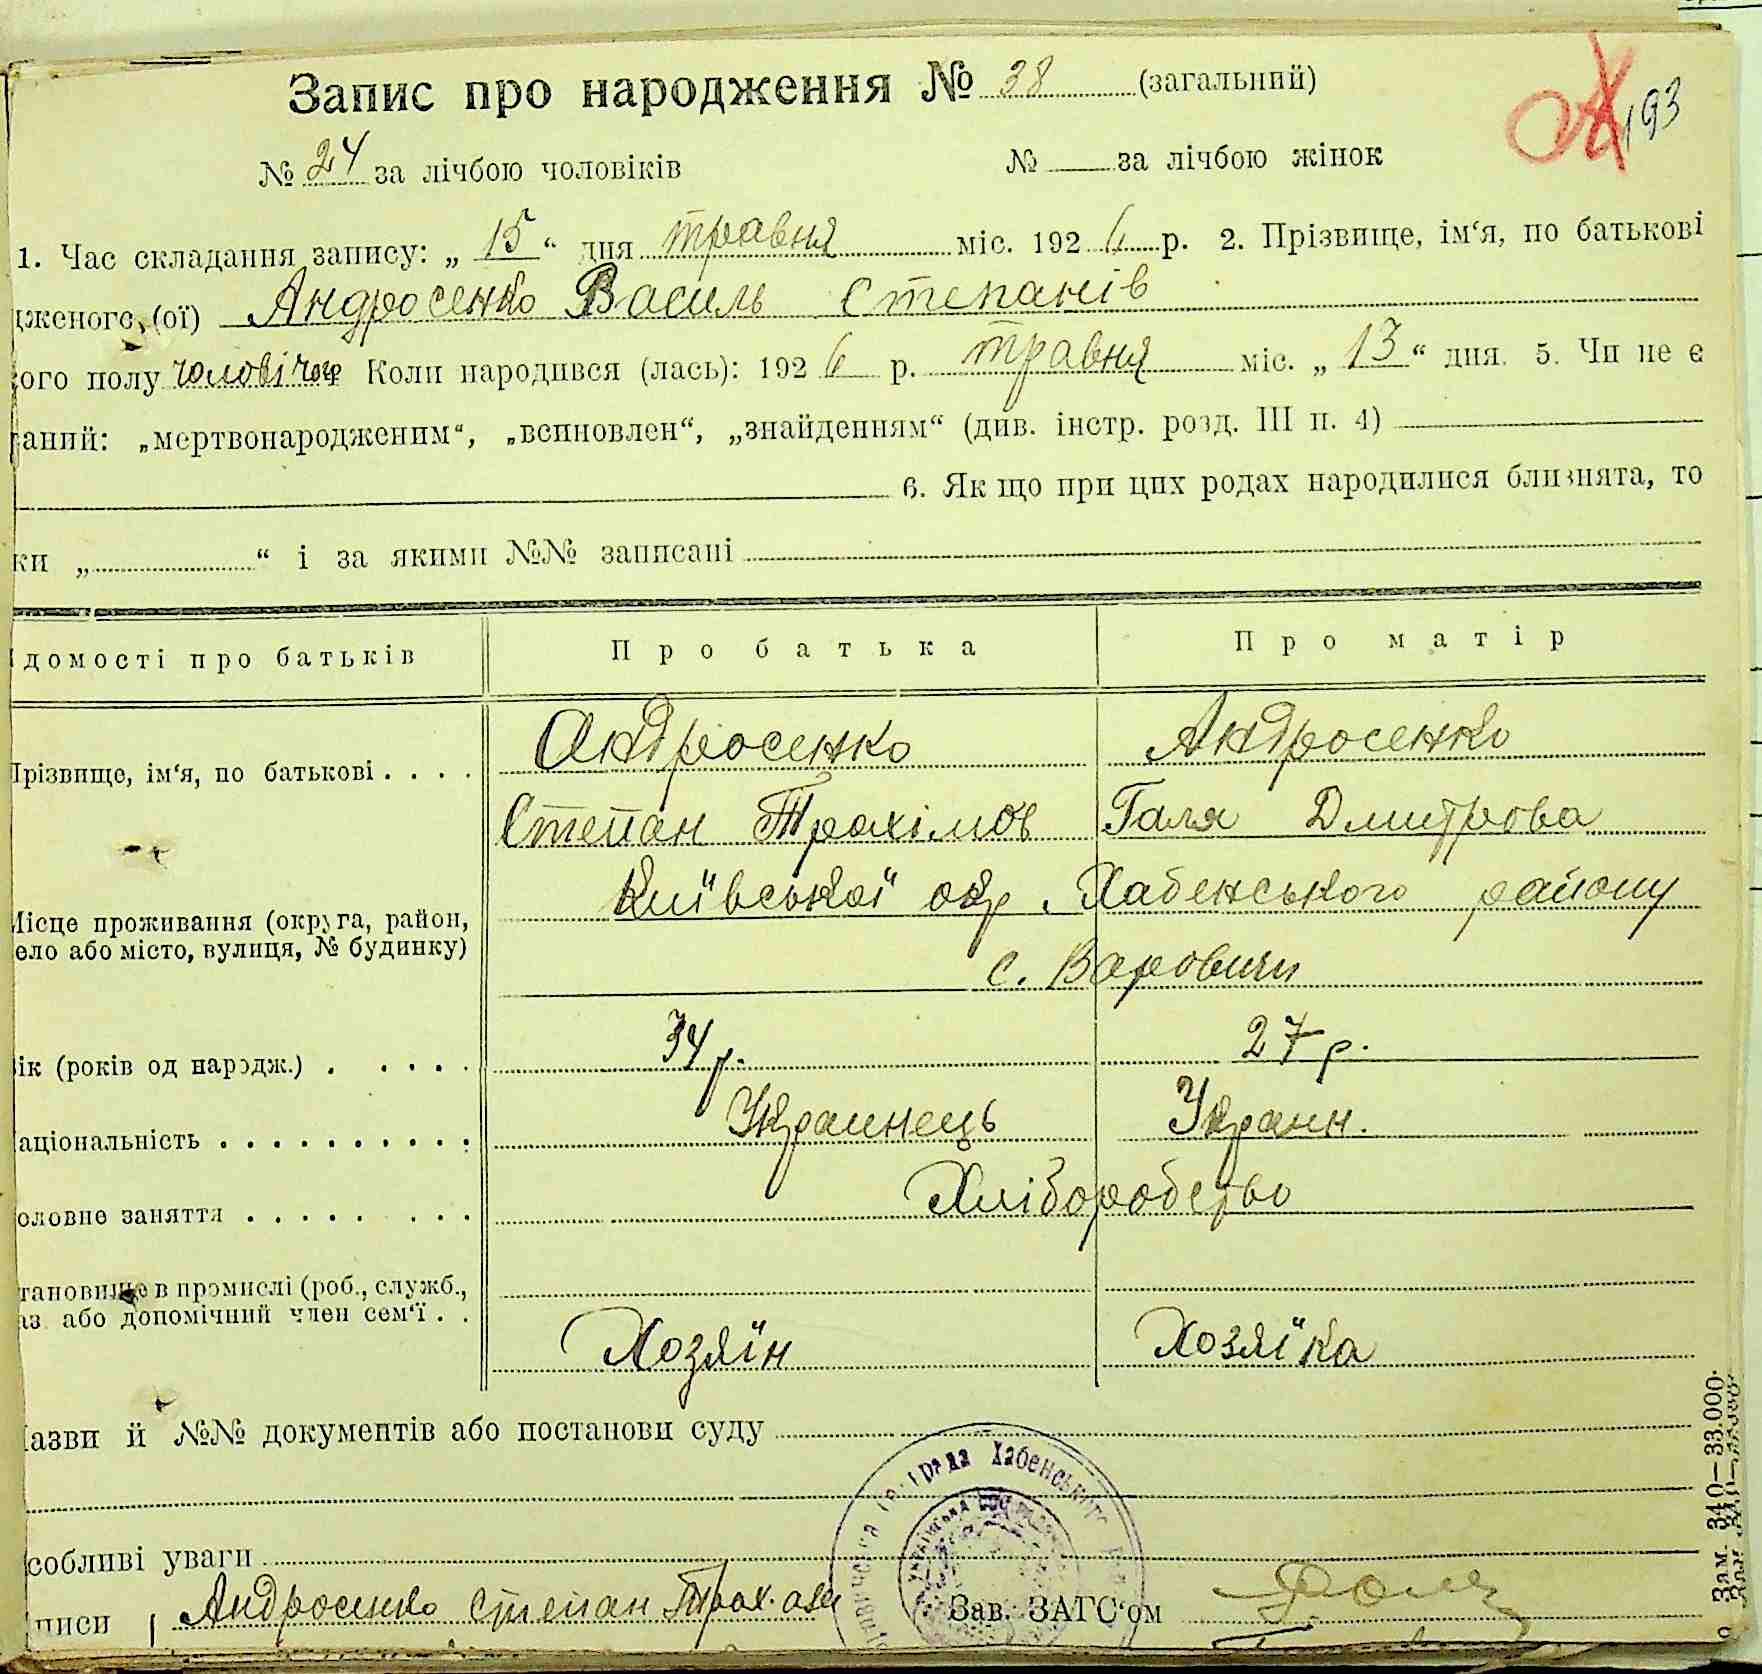 Запис про народження № 38 (загальний)
193
№ 24 за лічбою чоловіків № за лічбою жінок
1. Час складання запису: „ 15 “ дня травня міс. 192 6 р. 2. Прізвище, ім‘я, по батькові
дженого, (ої) Андросенко Василь Степанів
ого полу чоловічого Коли народився (лась): 192 6 р. травня міс. „ 13 “ дня. 5. Чи не є
аний: „мертвонародженим“, „всиновлен“, „знайденням“ (див. інстр. розд. III п. 4)
6. Як що при цих родах народилися близнята, то
ки „ “ і за якими №№ записані
домості про батьків Про батька Про матір
Прізвище, ім‘я, по батькові . . . . Андросенко Андросенко
Степан Трохімов Галя Дмитрова
Місце проживання (округа, район, Київської окр. Хабенського району
ело або місто, вулиця, № будинку) с. Варовичи
ік (років од народж.) . . . . . 34 р. 27 р.
аціональність . . . . . . . . . . Украинець Украин.
оловне заняття . . . . . . . . Хліборобство
тановище в промислі (роб., служб.,
аз. або допомічний член сем‘ї . . Хозяїн Хозяїка
азви й №№ документів або постанови суду
собливі уваги
рада Хабенського
писи Андросенко Степан Трох. Зав. ЗАГС‘ом
Зам. 340—33.000.